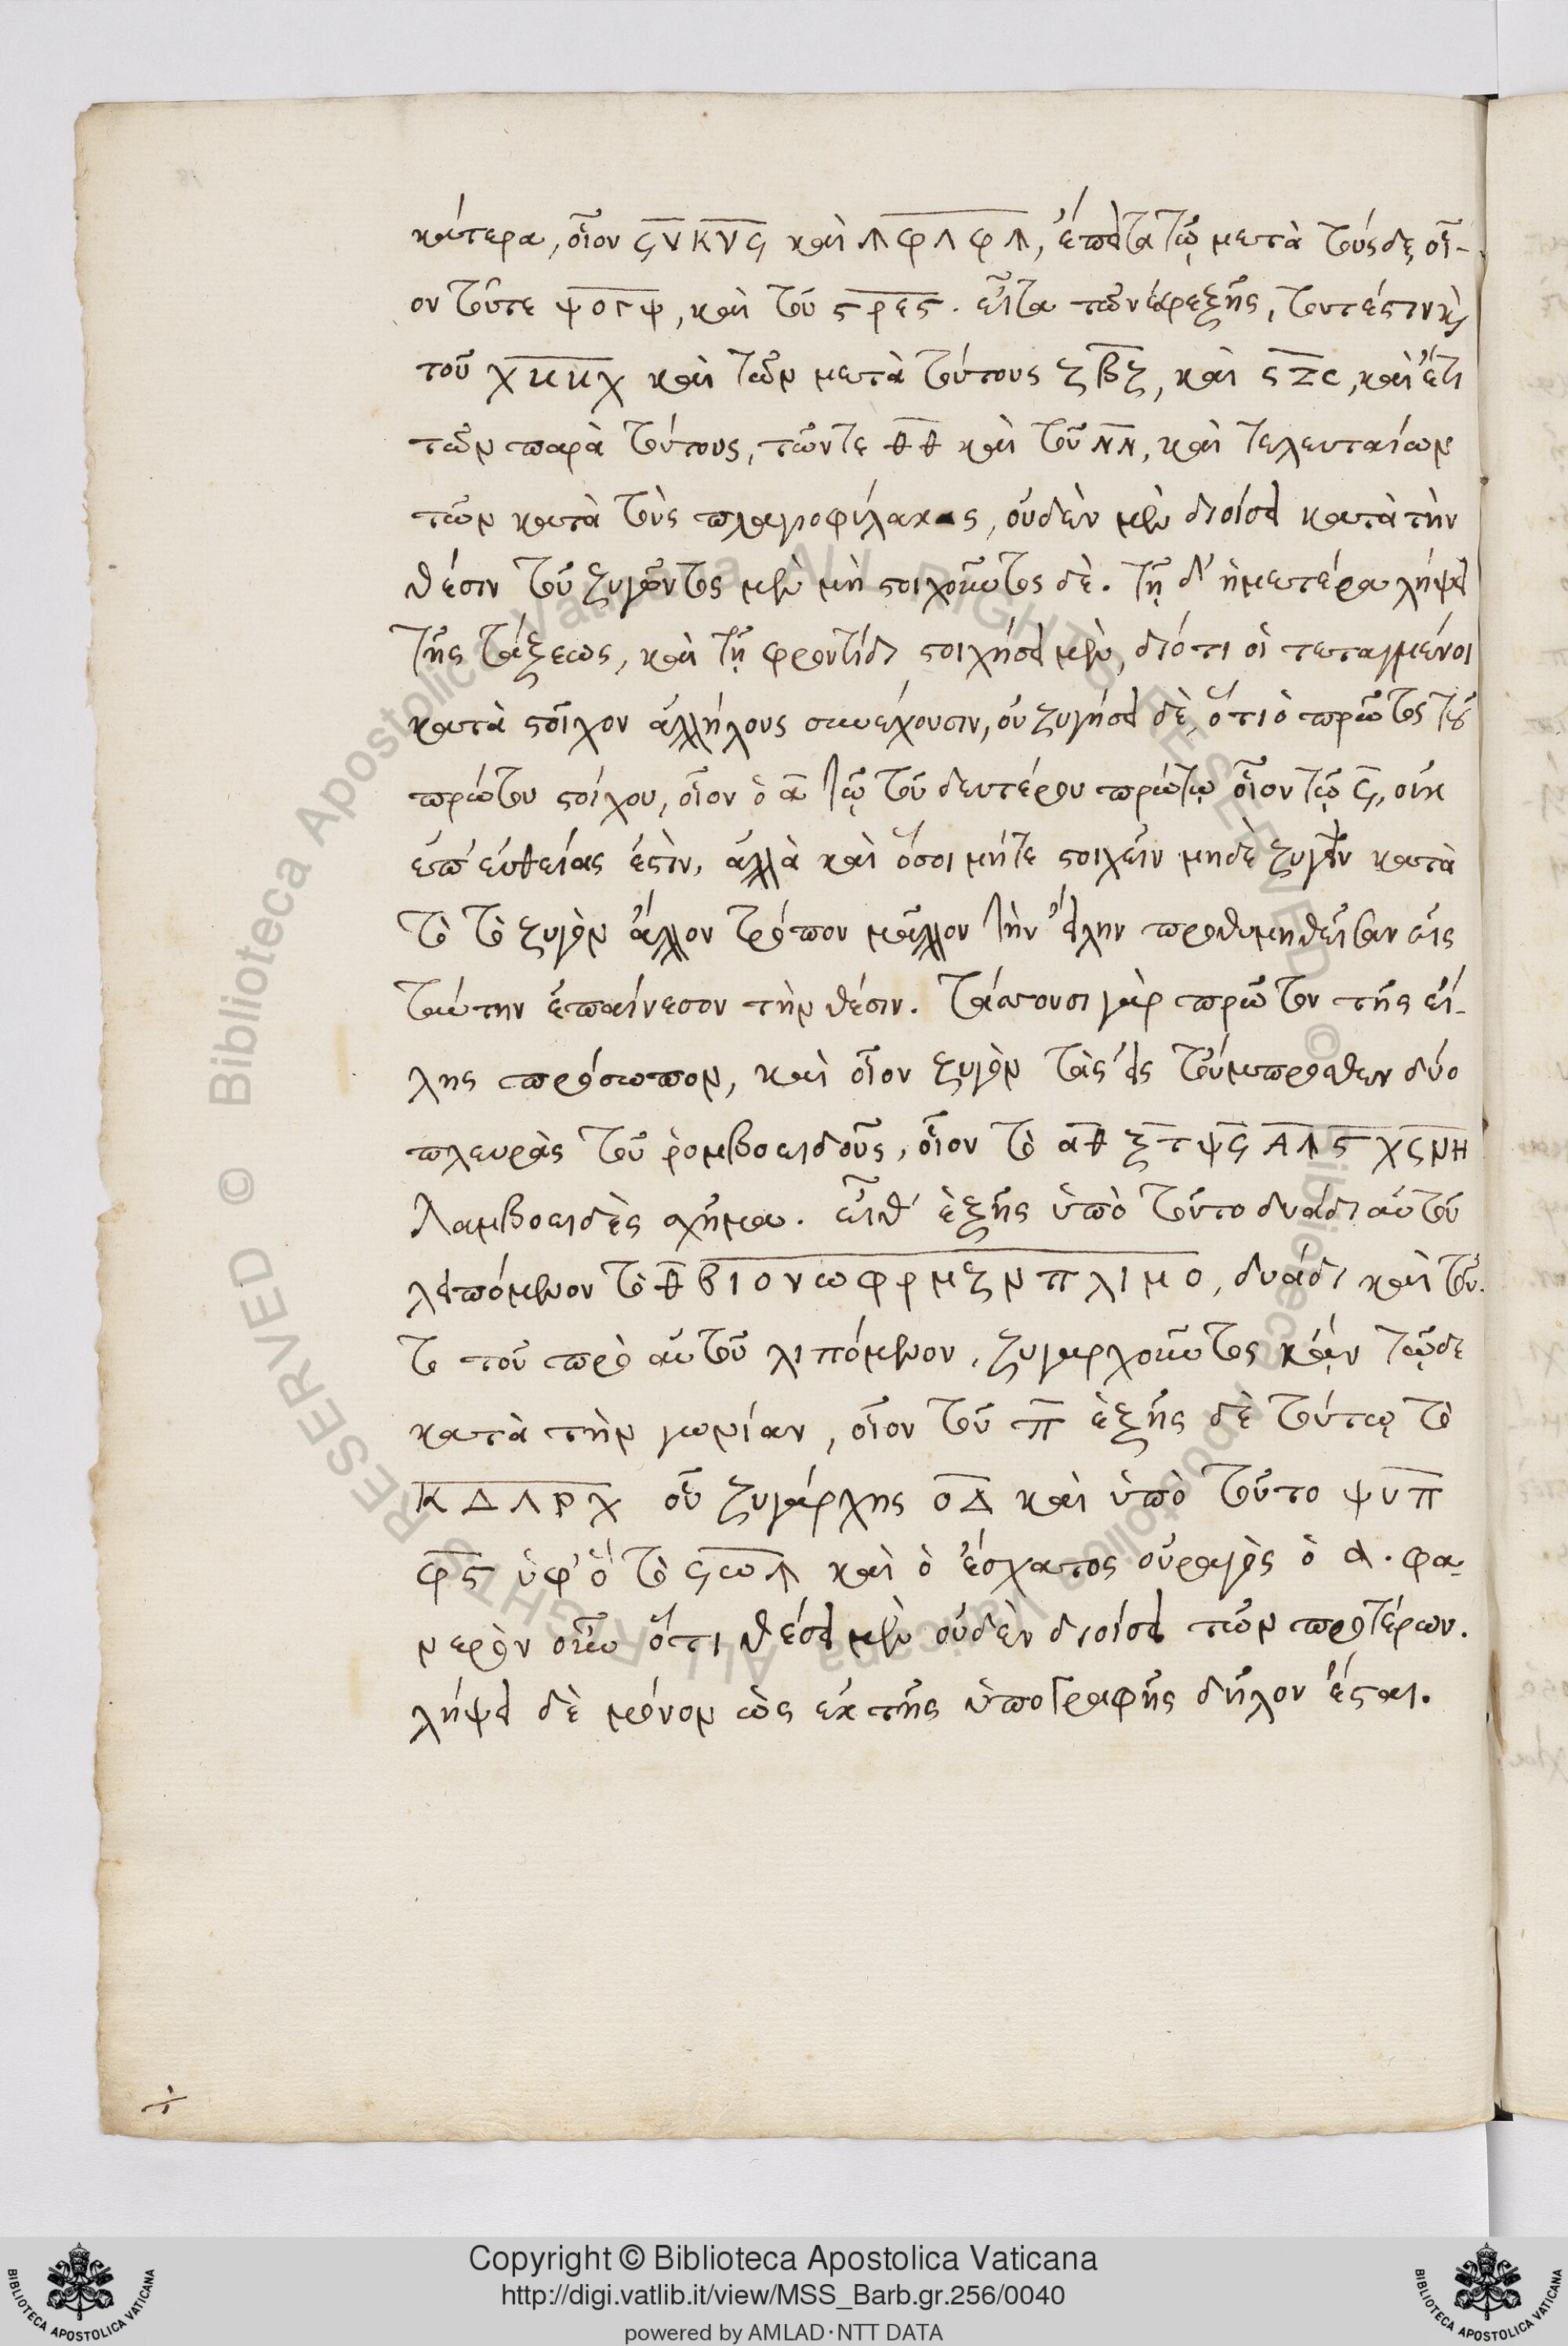 κάτερα, οἷον ϛνκνϛ καὶ λφλφλ, ἔπειτα τῷ μετὰ τούσδε, οἷ-
ον τοῦτε ψογψ, καὶ τοῦ ςρες. εἶτα τῶν ἐφεξῆς, τουτέστιν καὶ
τοῦ χκκχ καὶ τῶν μετὰ τούτους ζβζ, καὶ ςζς, καὶ ἔτι
τῶν παρὰ τούτους, τῶντε θθ καὶ τοῦ νν, καὶ τελευταίων
τῶν κατὰ τοὺς πλαγιοφύλακας, οὐδὲν μὲν διοίσει κατὰ τὴν
θέσιν τοῦ ζυγοῦντος μὲν μὴ στοιχοῦντος δὲ. τῇ δ' ἡμετέρα λήψει
τῆς τάξεως, καὶ τῇ φροντίδι στοιχήσει μὲν, διότι οἱ τεταγμένοι
κατὰ στοῖχον ἀλλήλους συνέχουσιν, οὐ ζυγήσει δὲ, ὅτι ὁ πρῶτος τοῦ
πρώτου στοίχου, οἷον ὁ α τῷ τοῦ δευτέρου πρώτῳ οἷον τῷ ϛ, οὐκ
ἐπ' εὐθείας ἐστὶν, ἀλλὰ καὶ ὅσοι μήτε στοιχεῖν μηδὲ ζυγεῖν κατὰ
τὸ τὸ ζυγὸν ἄλλον τρόπον μᾶλλον τὴν εἴλην προθυμηθεῖσαν εἰς
ταύτην ἐπαίνεσον τὴν θέσιν. τάττουσι γὰρ πρῶτον τῆς εἴ-
λης πρόσωπον, καὶ οἷον ζυγὸν τὰς εἰς τοὔμπροσθεν δύο
πλευρὰς τοῦ ῥομβοειδοῦς, οἷον τὸ αθ ξτψϛ ΑΛς χϛΝΗ
λαμβοειδὲς σχῆμα. εἶθ' ἑξῆς ὑπὸ τοῦτο δυάδι αὐτοῦ
λειπόμενον τὸ θβιονωφρμξνπλιμο, δυάδι καὶ τοῦ-
το τοῦ πρὸ αὐτοῦ λιπόμενον, ζυγαρχοῦντος κἀν τῷδε
κατὰ τὴν γωνίαν, οἷον τοῦ π ἑξῆς δὲ τούτῳ τὸ
ΚΔΛΡΧ οὗ ζυγάρχης ὁ Δ καὶ ὑπὸ τοῦτο ψυπ
φς ὑφ' ὃ τὸ ϛωλ καὶ ὁ ἔσχατος οὐραγὸς ὁ α. φα-
νερὸν οὖν ὅτι θέσει μὲν οὐδὲν διοίσει τῶν προτέρων.
λήψει δὲ μόνον ὡς ἐκ τῆς ὑπογραφῆς δῆλον ἔσται.
Copyright © Biblioteca Apostolica Vaticana
http://digi.vatlib.it/view/MSS_Barb.gr.256/0040
powered by AMLAD·NTT DATA